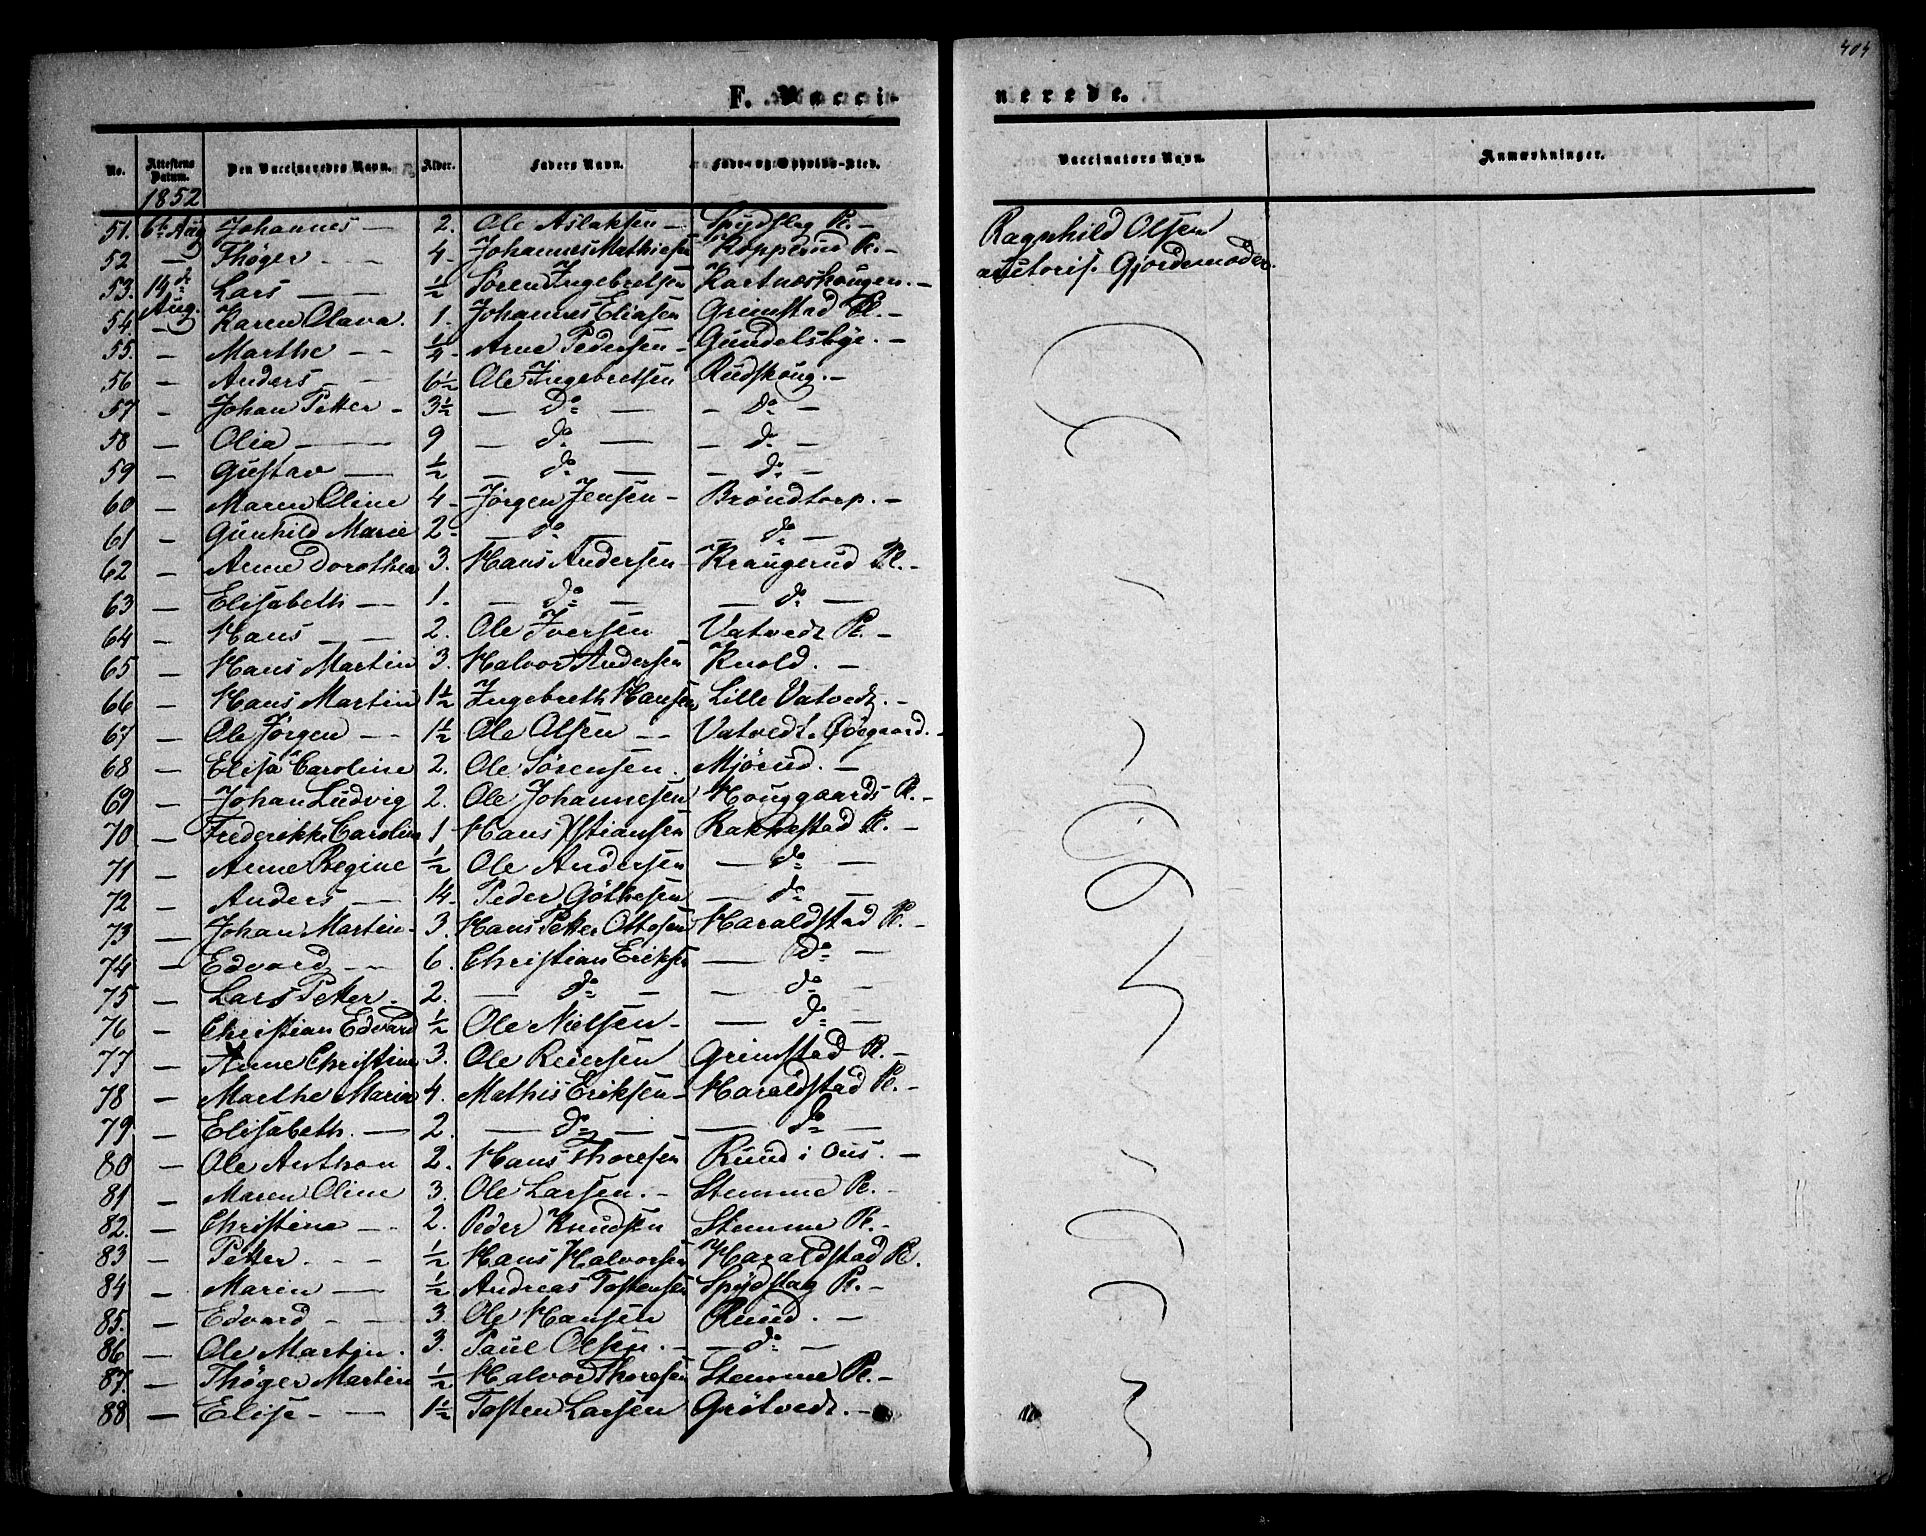 404
F. Vacci-
nerede.
No. Attestens Datum. Den Vaccineredes Navn. Alder. Faders Navn. Føde- og Opholds-Sted. Vaccinators Navn. Anmærkninger.
1852
51. 6te Aug Johannes — 2. Ole Aslaksen — Spydslag Pl. — Ragnhild Olsen
52 — Thøger — 4 - Johannes Mathiesen Kopperud Pl. — autoris. Gjordemoder.
53. 14de Aug. Lars — ½ Søren Ingebretsen Kartnæskougen. —
54 — Karen Olava. 1. Johannes Eliasen Grimstad Pl. —
55. — Marthe — ¼ Arne Pedersen — Gundelsbye. —
56 — Anders — 6½ Ole Ingebretsen Rudskoug. —
57 — Johan Petter — 3½ — Do — — Do —
58 — Olia — 9 — do — — do —
59 — Gustav — ½ — do — — do —
60 — Maren Oline 4 - Jørgen Jensen — Brøndtorp. —
61 — Gunhild Marie 2 - — do — do —
62 — Anne Dorothea 3. Hans Andersen Kraugerud Pl. —
63 — Elisabeth — 1. — do — — do —
64 — Hans — 2. Ole Iversen Vatvedt Pl. —
65 — Hans Martin 3. Halvor Andersen Knold. —
66 — Hans Martin 1½ Ingebreth Hansen Lille Vatvedt. —
67 — Ole Jørgen — 1½ Ole Olsen — Vatvedt Øvregaard. —
68 — Elisa Caroline 2. Ole Sørensen. Mjørud. —
69 — Johan Ludvig 2. Ole Johannesen Houggaards Pl. —
70 — Frederikke Caroline 1 Hans Xstiansen Rakkestad Pl. —
71 — Anne Regine ½ Ole Andersen — do —
72 — Anders — 14. Peder Gøthesen — do —
73 — Johan Martin — 3. Hans Petter Ottosen Haraldstad Pl. —
74 — Edvard — 6. Christian Eriksen — Do —
75 — Lars Petter. 2. — do — — do —
76 — Christian Edvard ½ Ole Nielsen — — do —
77 — Anne Christine 3. Ole Reiersen Grimstad Pl. —
78 — Marthe Maria 4. Mathis Eriksen — Haraldstad Pl. —
79 — Elisabeth. — 2. — do — — do —
80 — Ole Anthon 2. Hans Thoresen Ruud i Ous. —
81 — Maren Oline 3. Ole Larsen. — Stemme Pl. —
82. — Christine — 2. Peder Knudsen Stemme Pl. —
83 — Petter. — ½ Hans Halvorsen Haraldstad Pl.
84 — Maren — ½ Andreas Tostensen Spydslag Pl. —
85. — Edvard — 3. Ole Hansen Ruud. —
86 — Ole Martin. 3. Paul Olsen. — — do —
87. — Thøger Martin ½ Halvor Thoresen Stemme Pl. —
88 — Elise — 1½ Tosten Larsen Grøtvedt. —